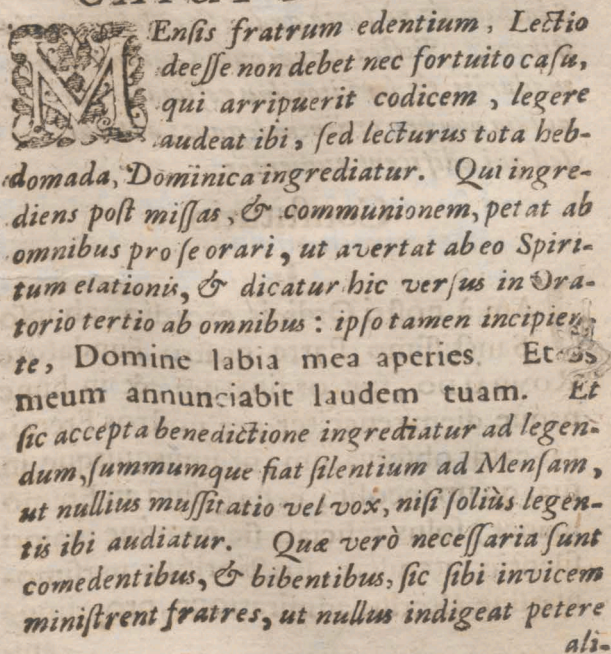 MEnsis fratrum edentium, Lectio
deesse non debet nec fortuito casu,
qui arripuerit codicem, legere
audeat ibi, sed lecturus tota heb-
domada, Dominica ingrediatur. Qui ingre-
diens post missas, & communionem, petat ab
omnibus pro se orari, ut avertat ab eo Spiri-
tum elationis, & dicatur hic versus in Ora-
torio tertio ab omnibus: ipso tamen incipien-
te, Domine labia mea aperies. Et os
meum annunciabit laudem tuam. Et
sic accepta benedictione ingrediatur ad legen-
dum, summumque fiat silentium ad Mensam,
ut nullius mussitatio vel vox, nisi soliùs legen-
tis ibi audiatur. Quæ verò necessaria sunt
comedentibus, & bibentibus, sic sibi invicem
ministrent fratres, ut nullus indigeat petere
ali-